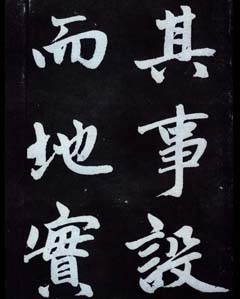 其事設
而地實